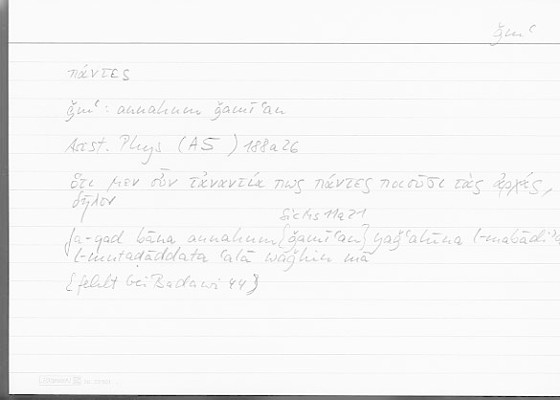 ǧmʿ
πάντες
ǧmʿ: annahum ǧamīʿan
Arist. Phys (A5) 188a26
ὅτι μὲν οὖν τἀναντία πως πάντες ποιοῦσι τὰς ἀρχάς,
δῆλον
sic Ms 11a21
fa-qad bāna annahum {ǧamīʿan} yaǧʿalūna l-mabādiʾa
l-mutaḍāddata ʿalā waǧhin mā
{fehlt bei Badawi 44}